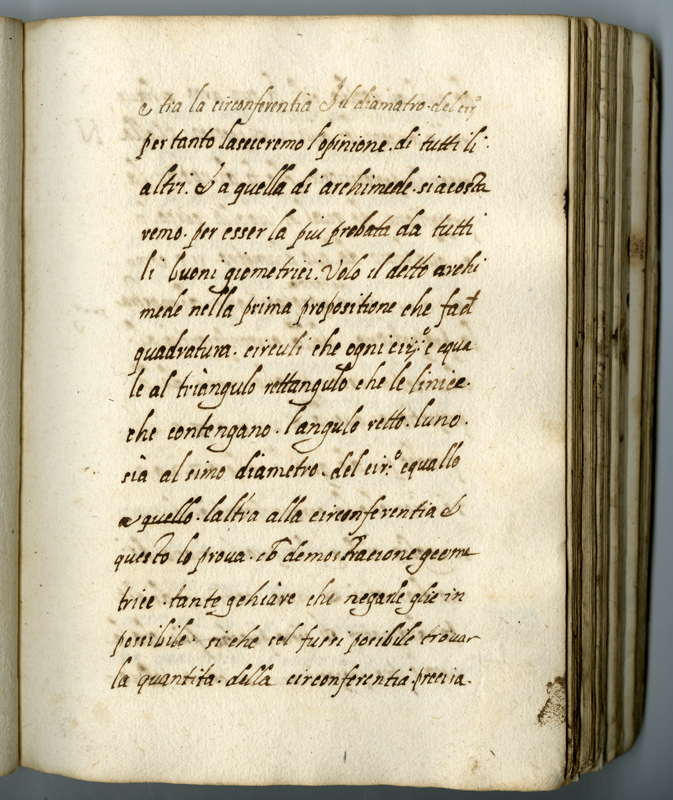 e tra la circonferentia & il diamatro. del cir.º
per tanto lasceremo l'opinione. di tutti li
altri. & a quella di archimede. si acosta
remo. per esser la piu probata da tutti
li buoni giometrici. Volo il detto archi
mede nella prima propositione che fa d
quadratura. circuli che ogni cir.º è equa
le al triàngulo rettangulo che le linice.
che contengano. l'angulo retto. luno.
sià al simo diàmetro. del cir.º equallo
a quello. laltra alla circonferentia &
questo lo prova. cõ demostracione geome
trice. tante gehiàre che negarle glie in
possibile. si che sel fussi posibile trovar
la quantita. della circonferentia. precisa.